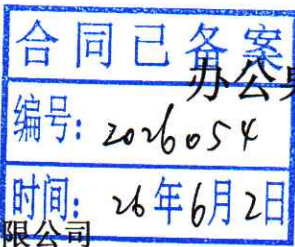 合同已备案
办公
编号: 2026054
时间: 26年6月2日
限公司